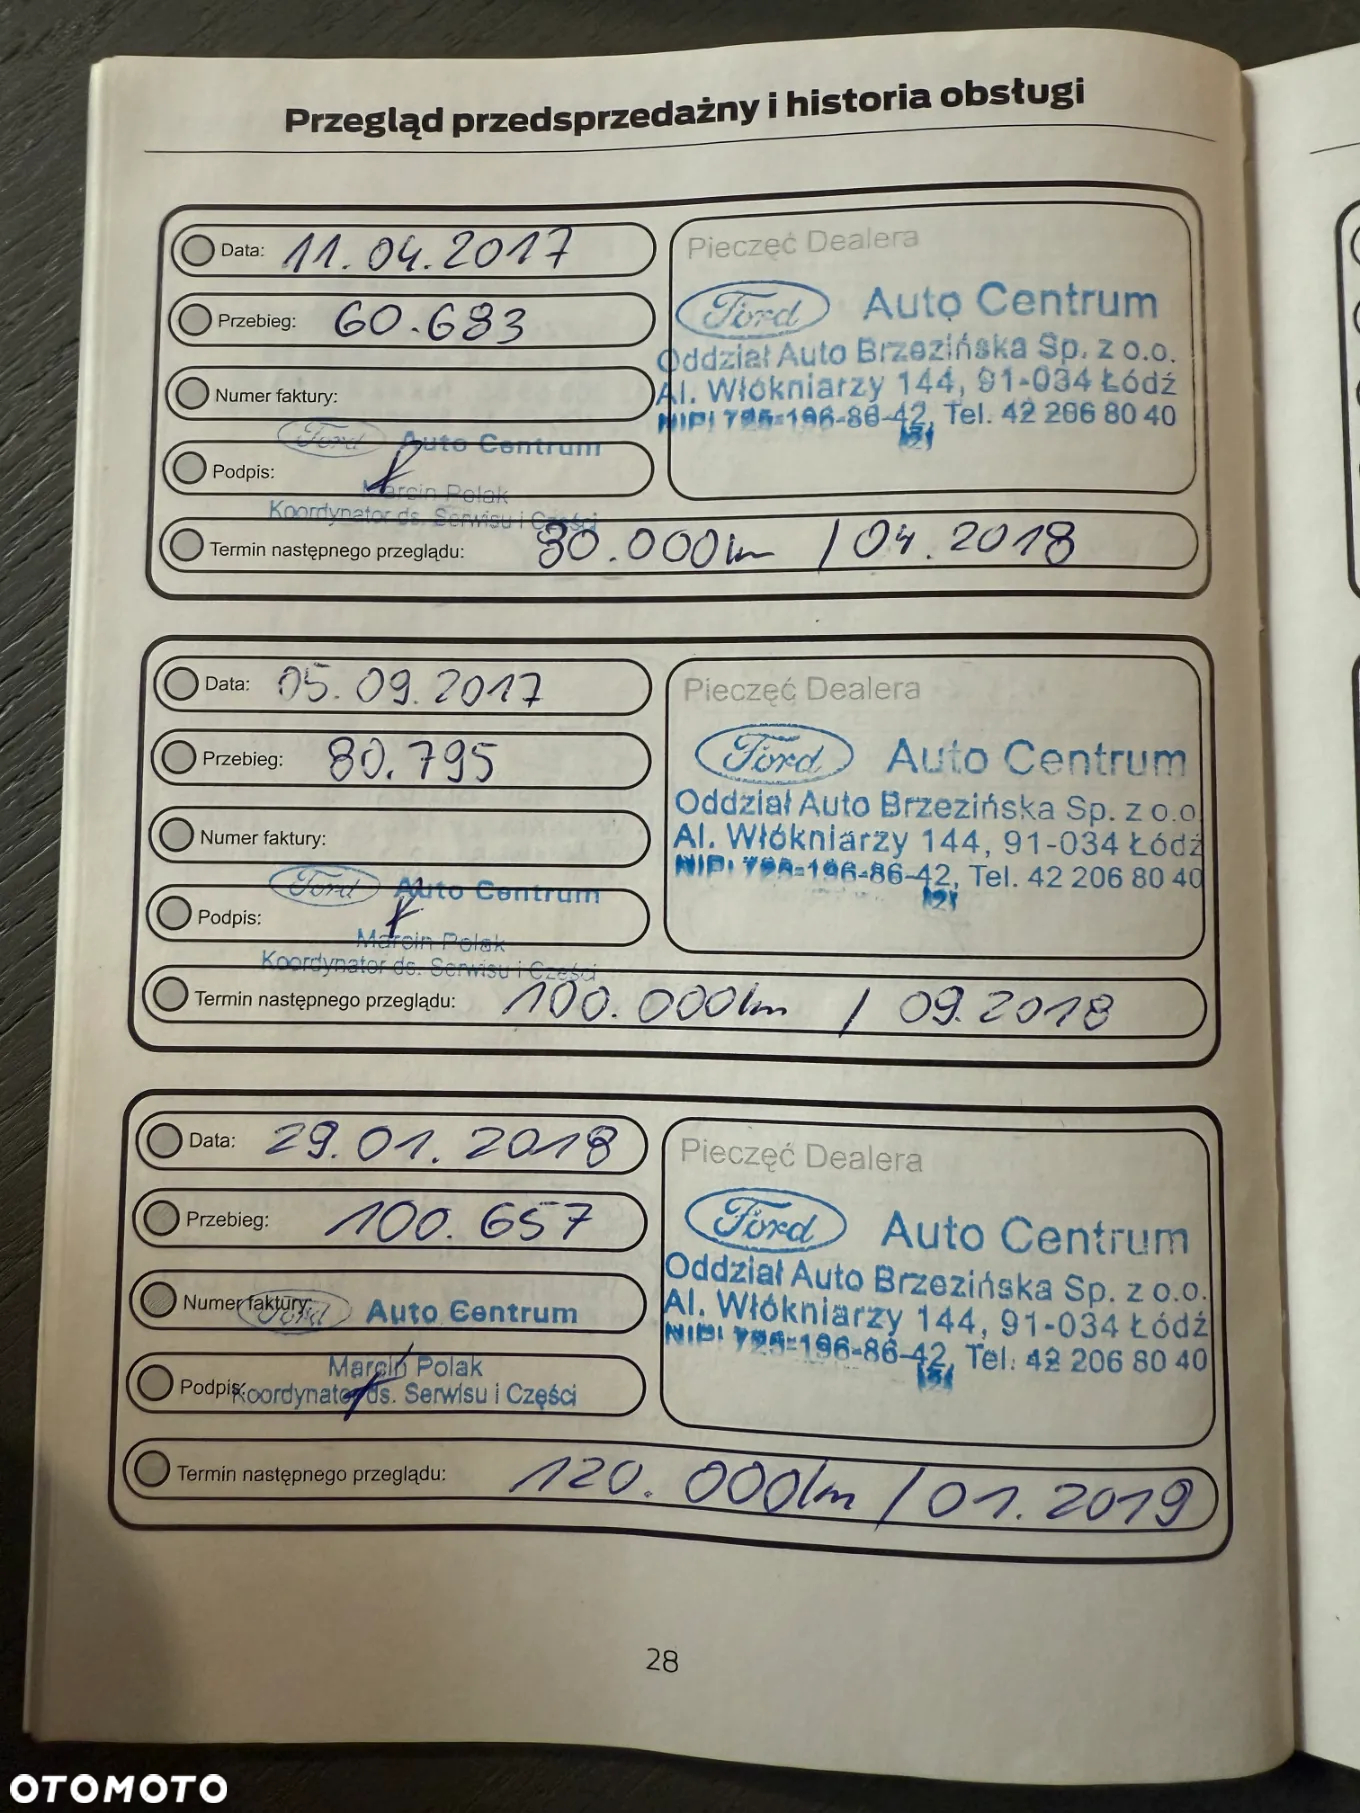 Przegląd przedsprzedażny i historia obsługi
Data: 11.04.2017
Przebieg: 60.683
Numer faktury:
Ford Auto Centrum
Podpis:
Marcin Polak
Koordynator ds. Serwisu i Części
Pieczęć Dealera
Ford Auto Centrum
Oddział Auto Brzezińska Sp. z o.o.
Al. Włókniarzy 144, 91-034 Łódź
NIP: 725-196-86-42, Tel. 42 206 80 40
Termin następnego przeglądu: 80.000km / 04.2018
Data: 05.09.2017
Przebieg: 80.795
Numer faktury:
Ford Auto Centrum
Podpis:
Marcin Polak
Koordynator ds. Serwisu i Części
Pieczęć Dealera
Ford Auto Centrum
Oddział Auto Brzezińska Sp. z o.o.
Al. Włókniarzy 144, 91-034 Łódź
NIP: 725-196-86-42, Tel. 42 206 80 40
Termin następnego przeglądu: 100.000km / 09.2018
Data: 29.01.2018
Przebieg: 100.657
Numer faktury:
Ford Auto Centrum
Marcin Polak
Podpis:
Koordynator ds. Serwisu i Części
Pieczęć Dealera
Ford Auto Centrum
Oddział Auto Brzezińska Sp. z o.o.
Al. Włókniarzy 144, 91-034 Łódź
NIP: 725-196-86-42, Tel. 42 206 80 40
Termin następnego przeglądu: 120.000km / 01.2019
28
OTOMOTO